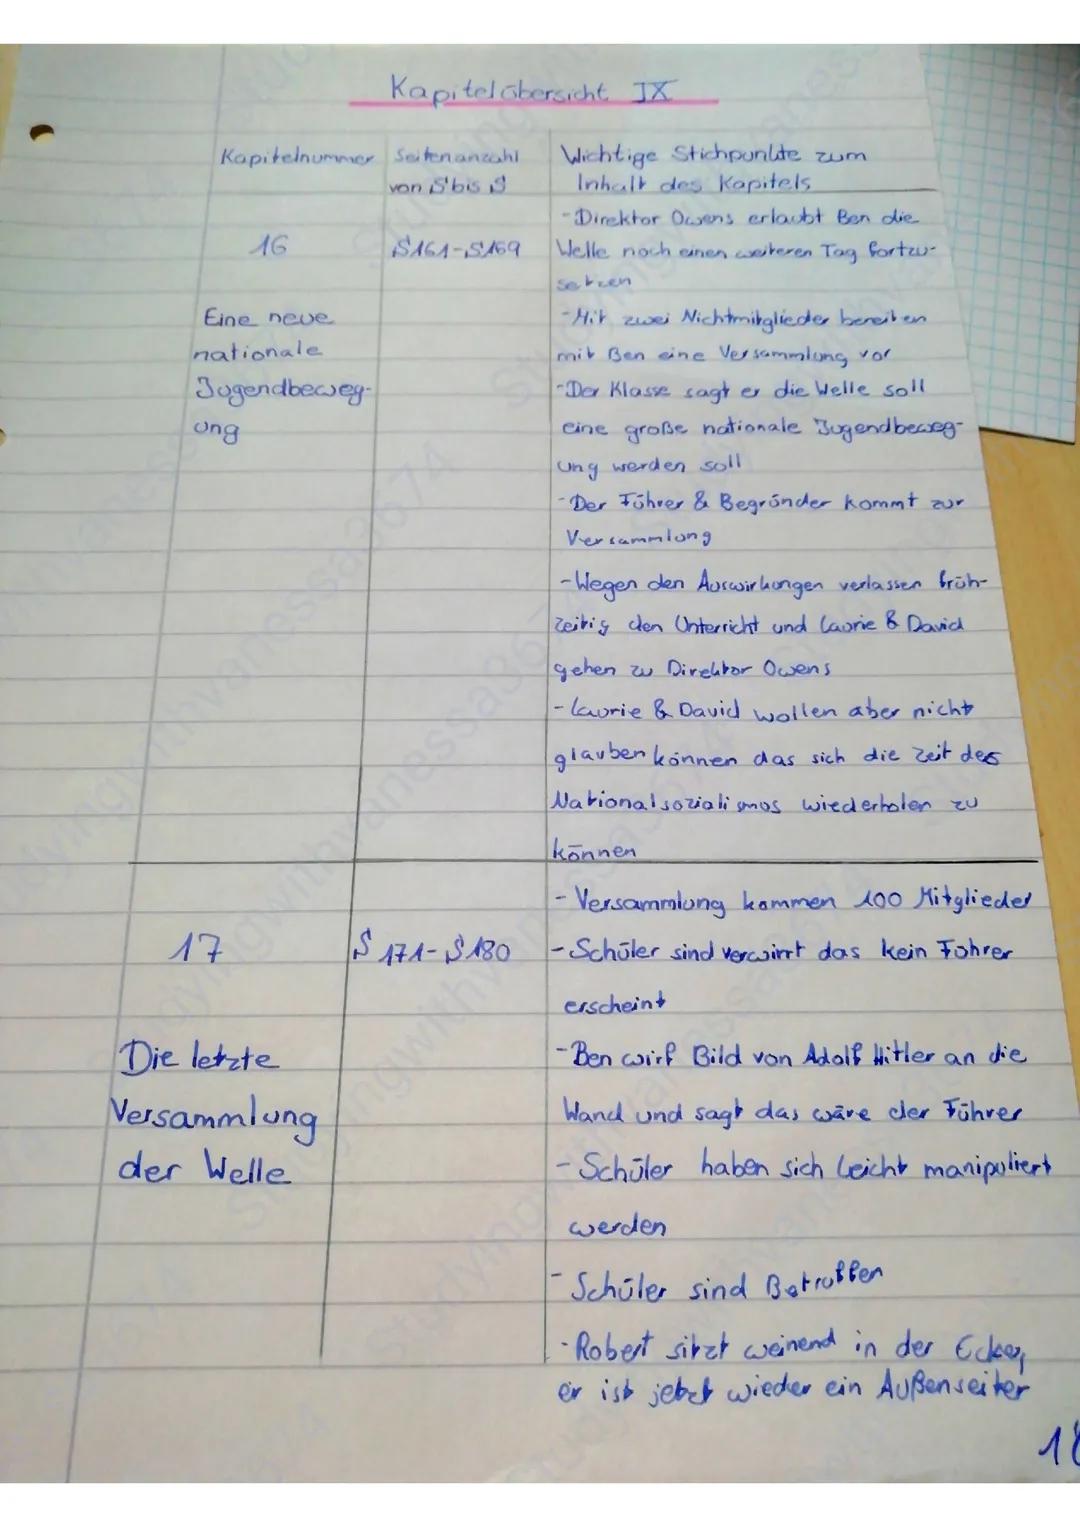 Kapitelübersicht IX
Kapitelnummer
Seitenanzahl
von S bis S
Wichtige Stichpunkte zum
Inhalt des Kapitels
16
Eine neue
nationale
Jugendbeweg-
ung
S161-S169
-Direktor Owens erlaubt Ben die
Welle noch einen weiteren Tag fortzu-
setzen
-Mit zwei Nichtmitglieder bereiten
mit Ben eine Versammlung vor
-Der Klasse sagt er die Welle soll
eine große nationale Jugendbeweg-
ung werden soll
-Der Führer & Begründer kommt zur
Versammlung
-Wegen den Auswirkungen verlassen früh-
zeitig den Unterricht und Laurie & David
gehen zu Direktor Owens
-Laurie & David wollen aber nicht
glauben können das sich die Zeit des
Nationalsozialismus wiederholen zu
können
17
Die letzte
Versammlung
der Welle
S 171-S180
- Versammlung kommen 100 Mitglieder
-Schüler sind verwirrt das kein Führer
erscheint
-Ben wirf Bild von Adolf Hitler an die
Wand und sagt das wäre der Führer
-Schüler haben sich leicht manipuliert
werden
-Schüler sind Betroffen
-Robert sitzt weinend in der Ecke,
er ist jetzt wieder ein Außenseiter
studyingwithvanessa3674